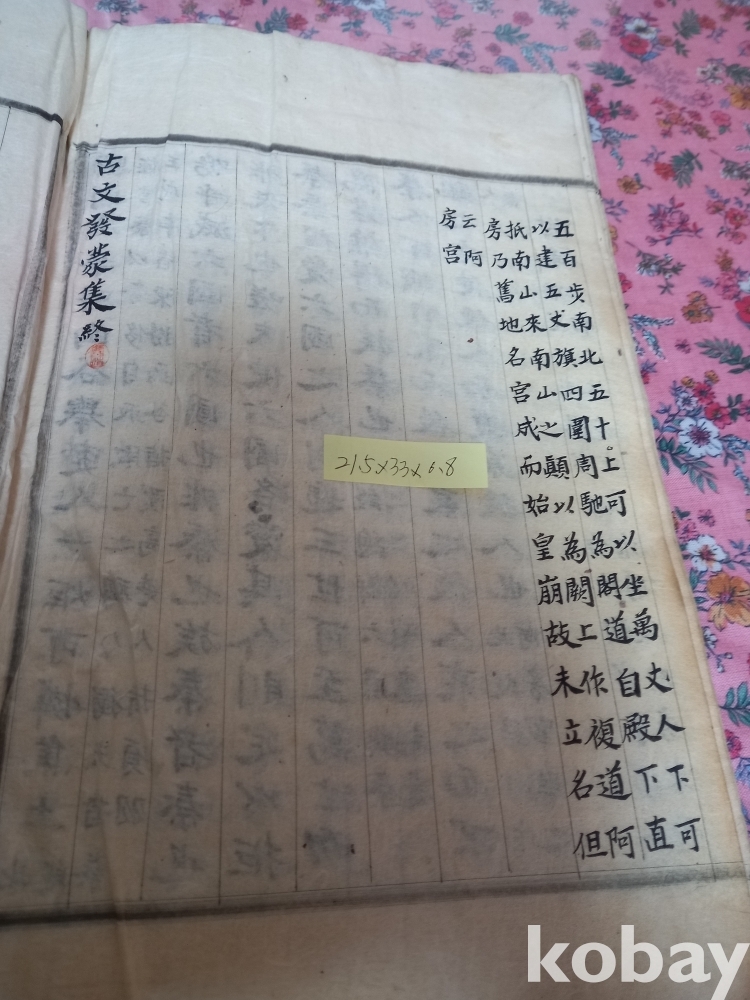 五百步南北五十上可以坐萬丈人下可
以建五丈旗四圍周馳為閣道自殿下直
抵南山來南山之顛以為闕上作複道阿
房乃舊地名宮成而始皇崩故未立名但
云阿
房宮
古文發蒙集 終
21.5x33x0.8
kobay